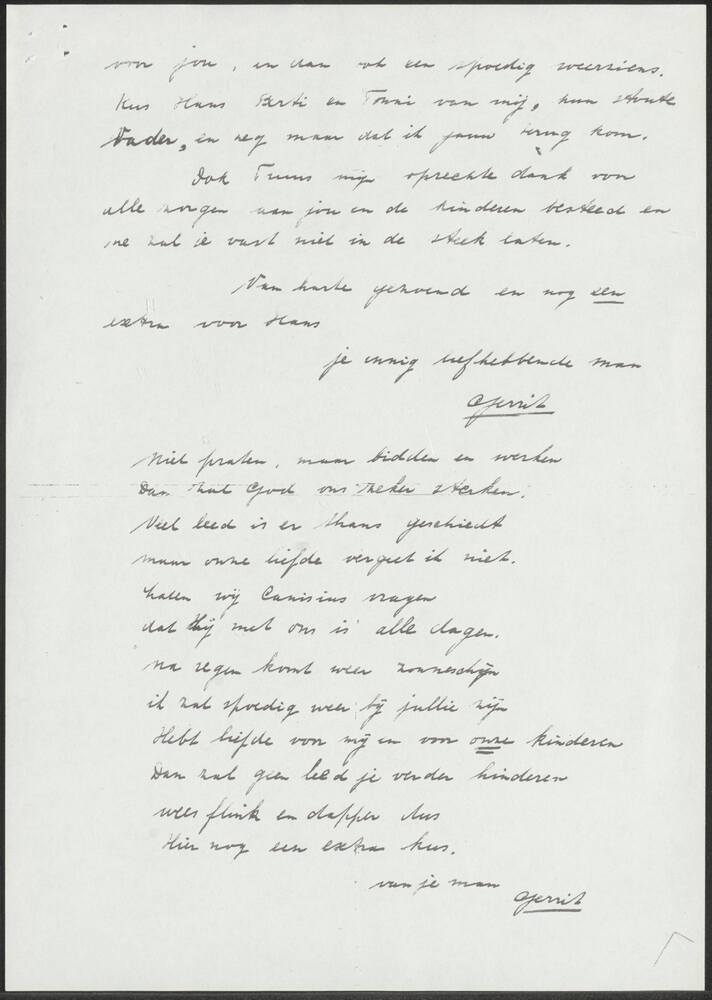 voor jou, en dan ook een spoedig weerziens.
Kus Hans Berti en Tonni van mij, hun stoute
Vader, en zeg maar dat ik gauw terug kom.
Ook Truus mijn oprechte dank voor
alle zorgen aan jou en de kinderen besteed en
ze zal je vast niet in de steek laten.
Van harte gezoend en nog een
extra voor Hans
je innig liefhebbende man
Gerrit
Niet praten, maar bidden en werken
Dan zal God ons zeker sterken.
Veel leed is er thans geschiedt
maar onze liefde vergeet ik niet.
Laten wij Canisius vragen
dat Hij met ons is alle dagen.
na regen komt weer zonneschijn
ik zal spoedig weer bij jullie zijn
Hebt liefde voor mij en voor onze kinderen
Dan zal geen leed je verder hinderen
wees flink en dapper dus
Hier nog een extra kus.
van je man
Gerrit